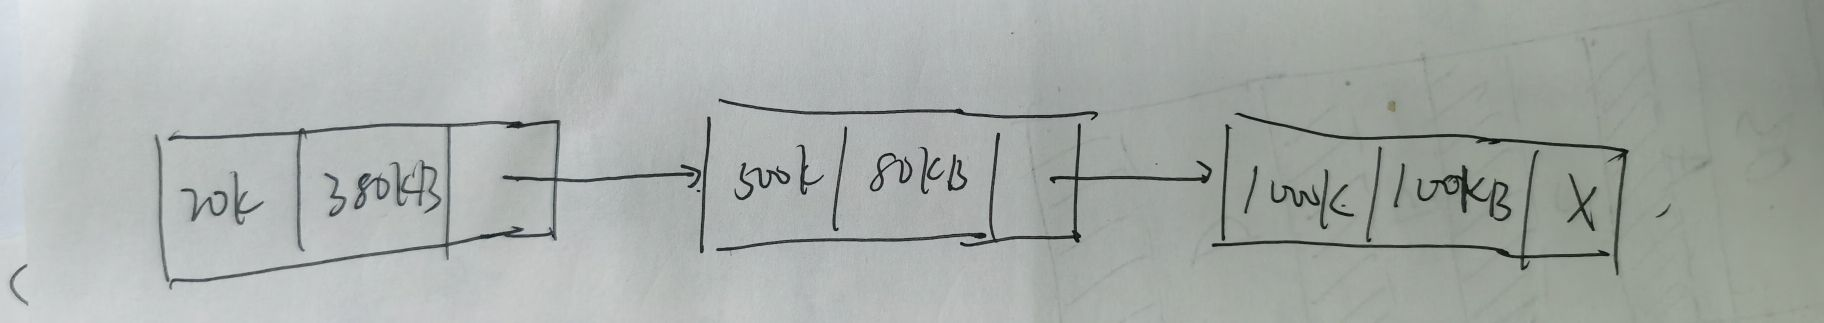 20k 380KB 500k 80KB 1000k 100KB X